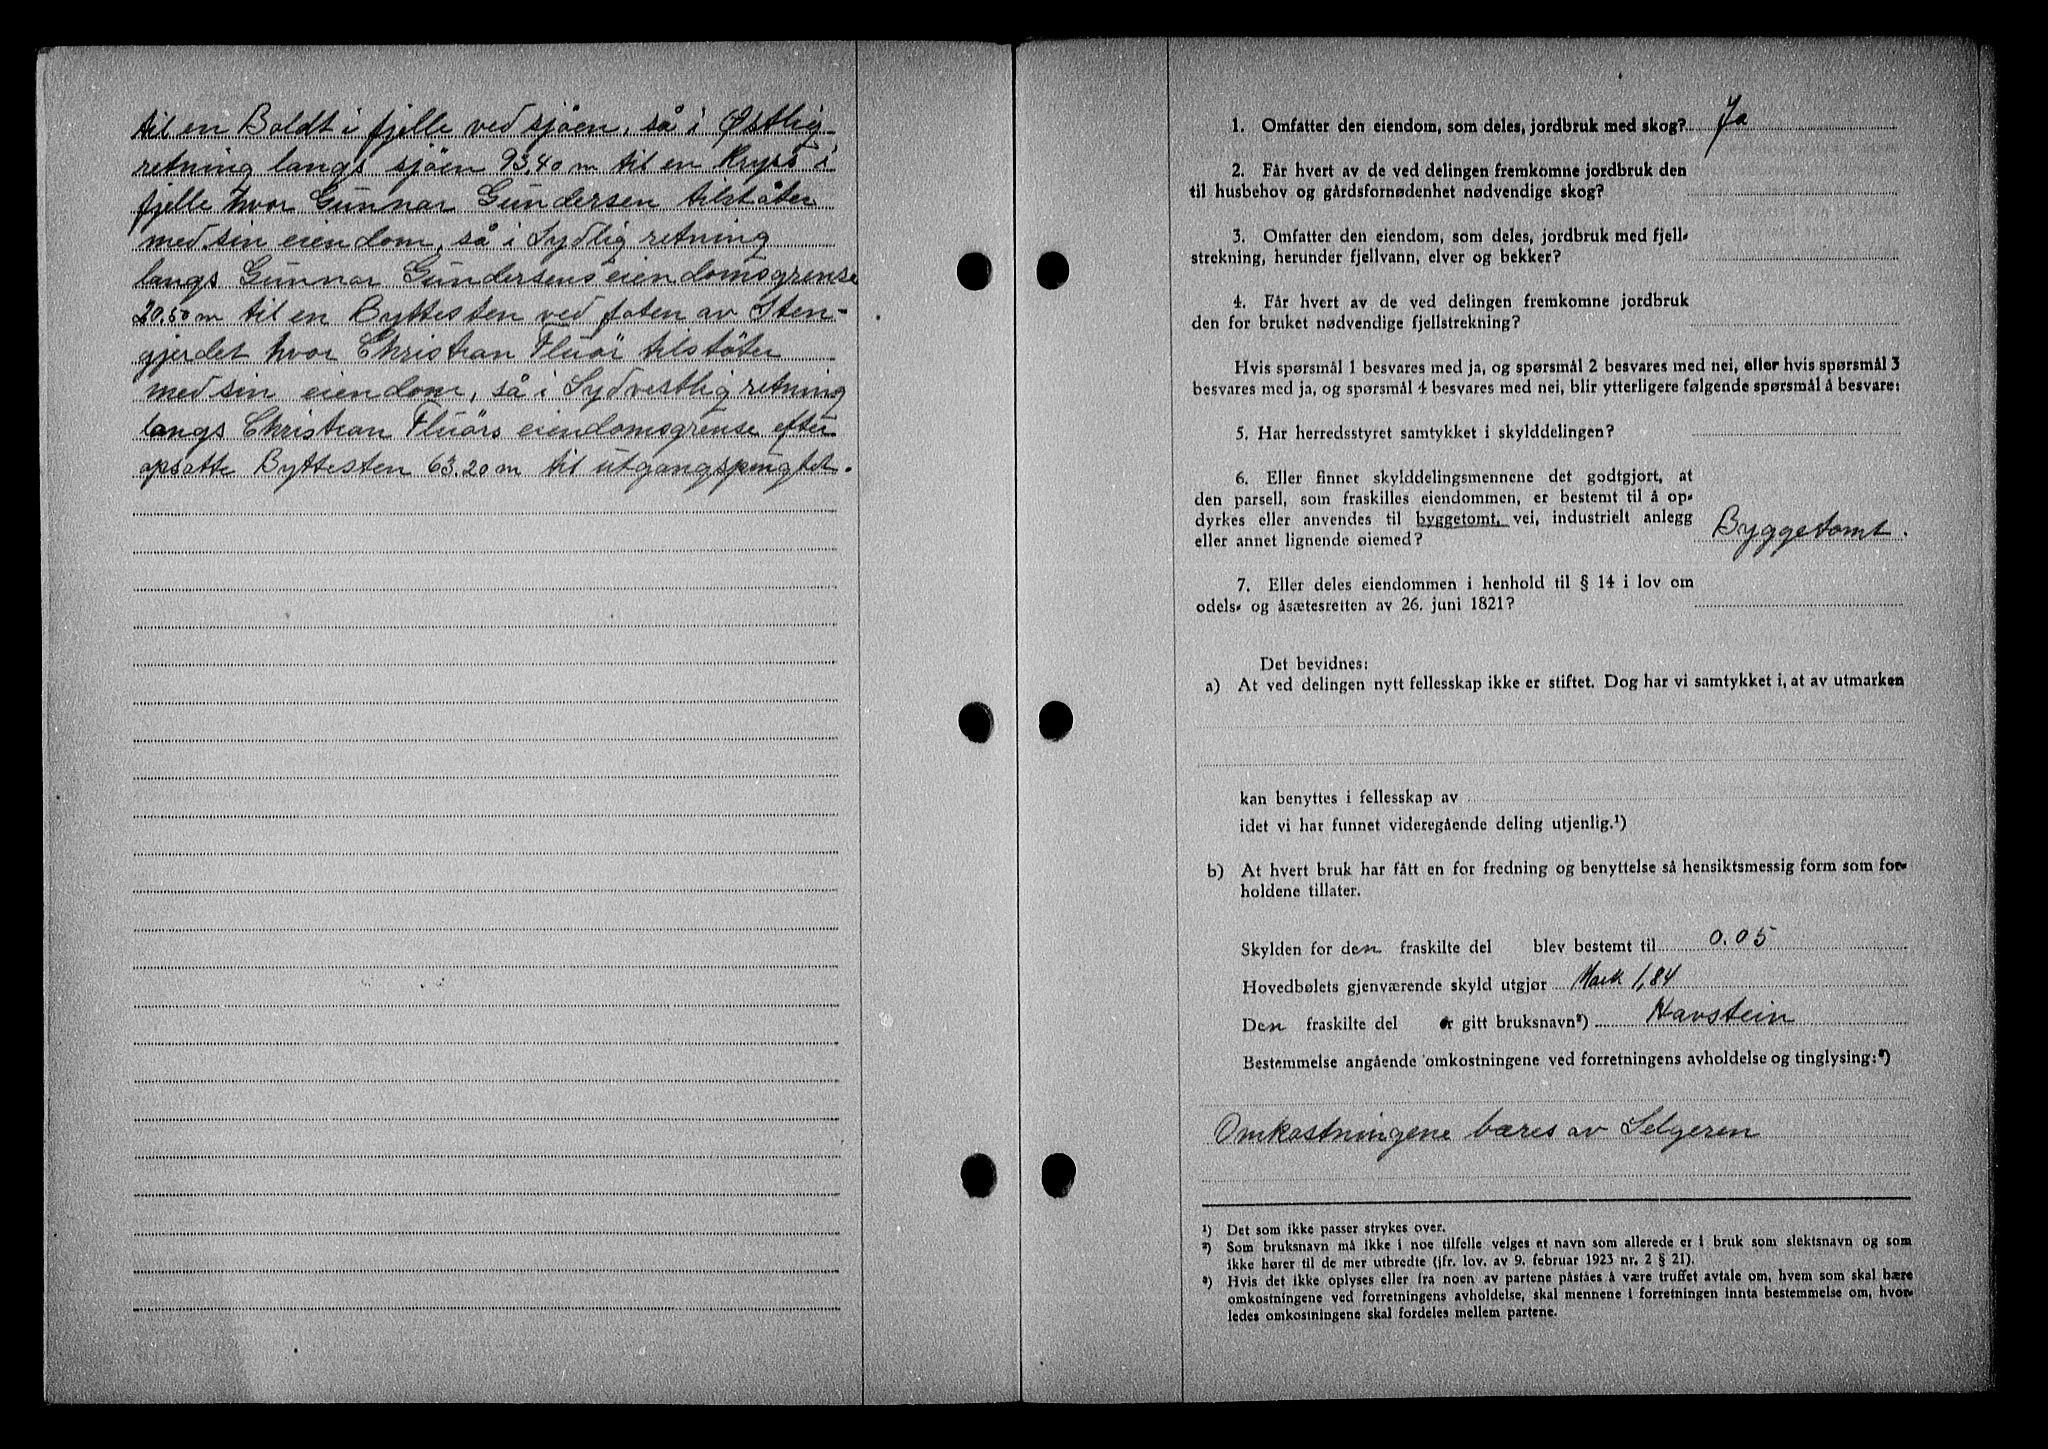 til en Boldt i fjelle ved sjöen, så i Østlig
retning langs sjöen 93,40 m til en Kryss i
fjelle hvor Gunnar Gundersen tilstöter
med sin eiendom, så i Sydlig retning
langs Gunnar Gundersens eiendomsgrense
20,50 m til en Byttesten ved foten av Sten-
gjerdet hvor Christian Fluör tilstöter
med sin eiendom, så i Sydvestlig retning
langs Christian Fluörs eiendomsgrense efter
opsatte Byttesten 63.20 m til utgangspungtet.
1. Omfatter den eiendom, som deles, jordbruk med skog? Ja
2. Får hvert av de ved delingen fremkomne jordbruk den
til husbehov og gårdsfornødenhet nødvendige skog?
3. Omfatter den eiendom, som deles, jordbruk med fjell-
strekning, herunder fjellvann, elver og bekker?
4. Får hvert av de ved delingen fremkomne jordbruk
den for bruket nødvendige fjellstrekning?
Hvis spørsmål 1 besvares med ja, og spørsmål 2 besvares med nei, eller hvis spørsmål 3
besvares med ja, og spørsmål 4 besvares med nei, blir ytterligere følgende spørsmål å besvare:
5. Har herredsstyret samtykket i skylddelingen?
6. Eller finner skylddelingsmennene det godtgjort, at
den parsell, som fraskilles eiendommen, er bestemt til å op-
dyrkes eller anvendes til byggetomt, vei, industrielt anlegg
eller annet lignende øiemed? Byggetomt.
7. Eller deles eiendommen i henhold til § 14 i lov om
odels- og åsætesretten av 26. juni 1821?
Det bevidnes:
a) At ved delingen nytt fellesskap ikke er stiftet. Dog har vi samtykket i, at av utmarken
kan benyttes i fellesskap av
idet vi har funnet videregående deling utjenlig.¹)
b) At hvert bruk har fått en for fredning og benyttelse så hensiktsmessig form som for-
holdene tillater.
Skylden for den fraskilte del blev bestemt til 0.05
Hovedbølets gjenværende skyld utgjør Mark 1,84
Den fraskilte del er gitt bruksnavn²) Havstein
Bestemmelse angående omkostningene ved forretningens avholdelse og tinglysing:³)
Omkostningene bæres av Selgeren
¹) Det som ikke passer strykes over.
²) Som bruksnavn må ikke i noe tilfelle velges et navn som allerede er i bruk som slektsnavn og som
ikke hører til de mer utbredte (jfr. lov. av 9. februar 1923 nr. 2 § 21).
³) Hvis det ikke oplyses eller fra noen av partene påståes å være truffet avtale om, hvem som skal bære
omkostningene ved forretningens avholdelse, skal mennene i forretningen innta bestemmelse om, hvor-
ledes omkostningene skal fordeles mellem partene.